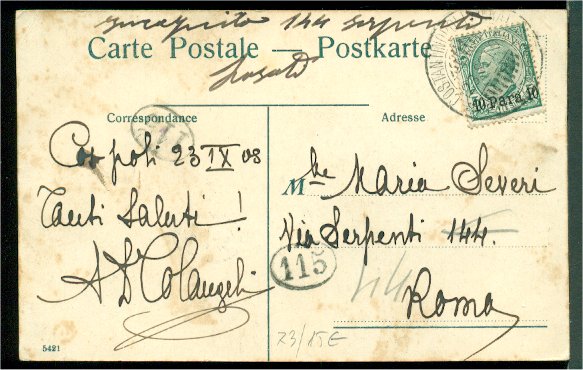 144 Serpenti
Carte Postale — Postkarte
Correspondance
Adresse
COSTANTINOPOLI
10 Para 10
Cospoli 23 IX 08
Tanti Saluti!
Mlle Maria Severi
Via Serpenti 144.
115
Roma
73/15E
5421